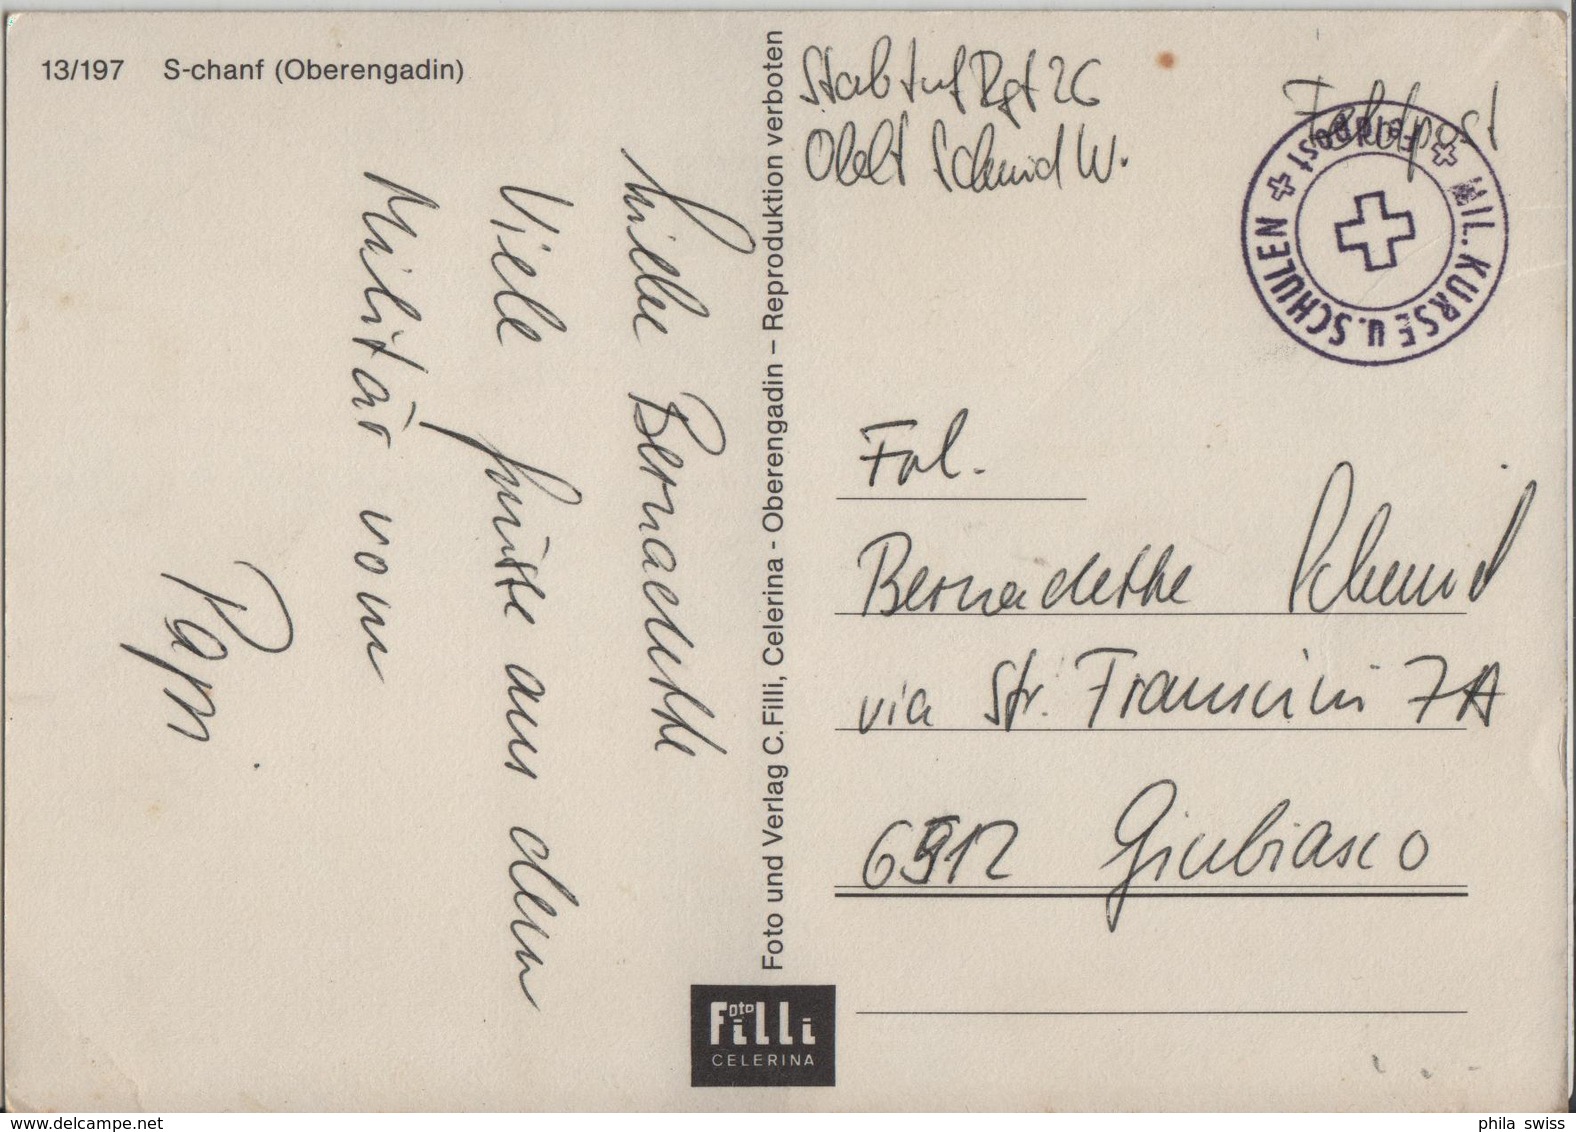 13/197 S-chanf (Oberengadin)
Liebe Bernadette
Viele Grüsse aus dem
Militär vom
Papi
Foto und Verlag C. Filli, Celerina - Oberengadin – Reproduktion verboten
Foto Filli
CELERINA
Stab Inf Rgt 26
Oblt Schmid W.
Feldpost
MIL. KURSE U. SCHULEN
Feldpost
Frl.
Bernadette Schmid
via Str. Franscini 7A
6512 Giubiasco
phila swiss